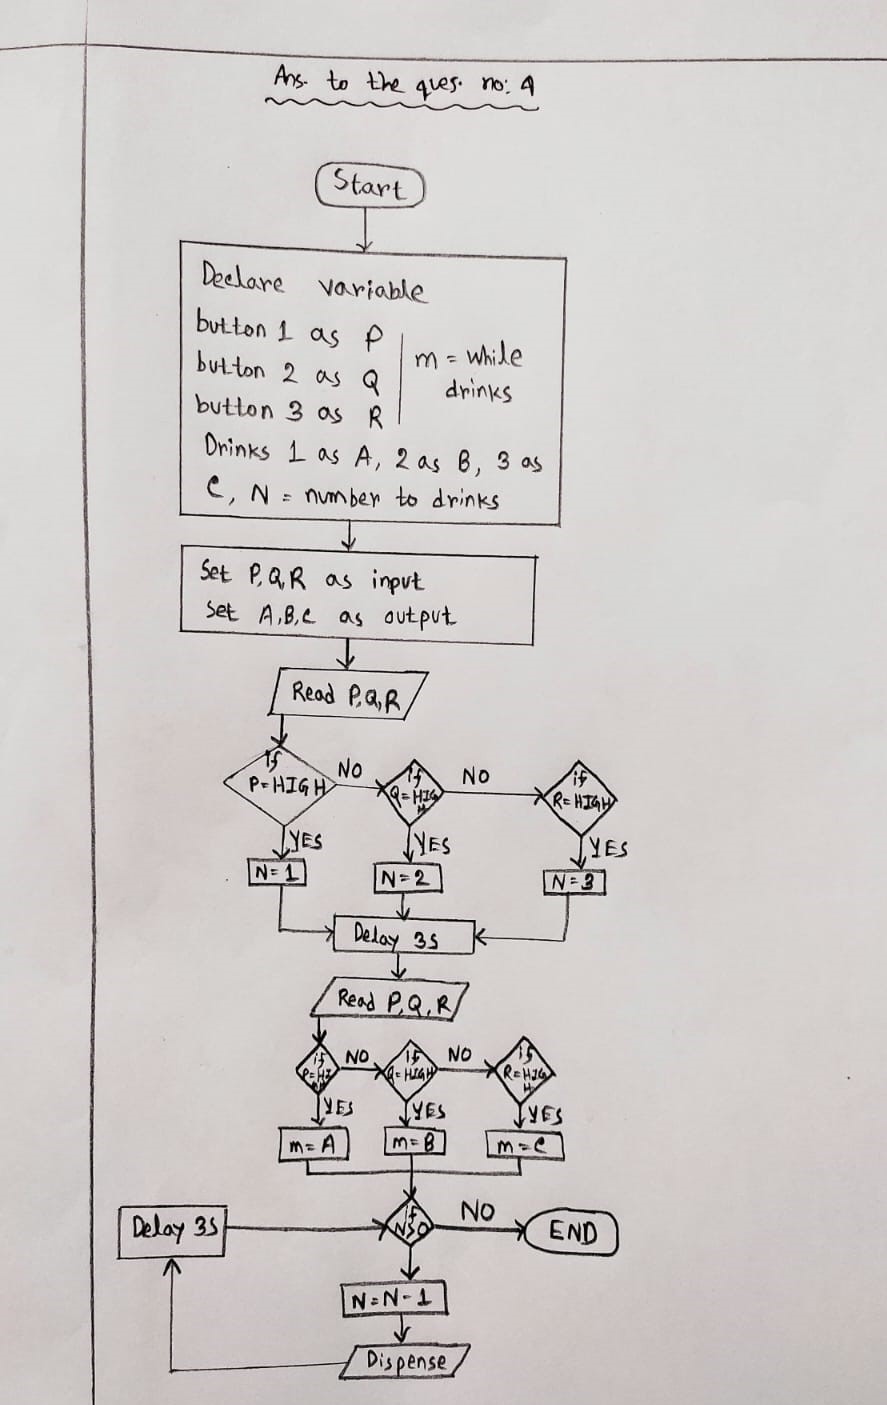 Ans. to the ques. no: 4
Start
Declare variable
button 1 as P
button 2 as Q
button 3 as R
m = while
drinks
Drinks 1 as A, 2 as B, 3 as
C, N = number to drinks
Set P,Q,R as input
Set A,B,C as output
Read P,Q,R
if
P=HIGH
NO
if
Q=HIG
H
NO
if
R=HIGH
YES
YES
YES
N=1
N=2
N=3
Delay 3s
Read P,Q,R
if
NO
if
Q=HIGH
NO
if
R=HIG
H
YES
YES
YES
m=A
m=B
m=C
Delay 3s
if
NO
END
N=N-1
Dispense